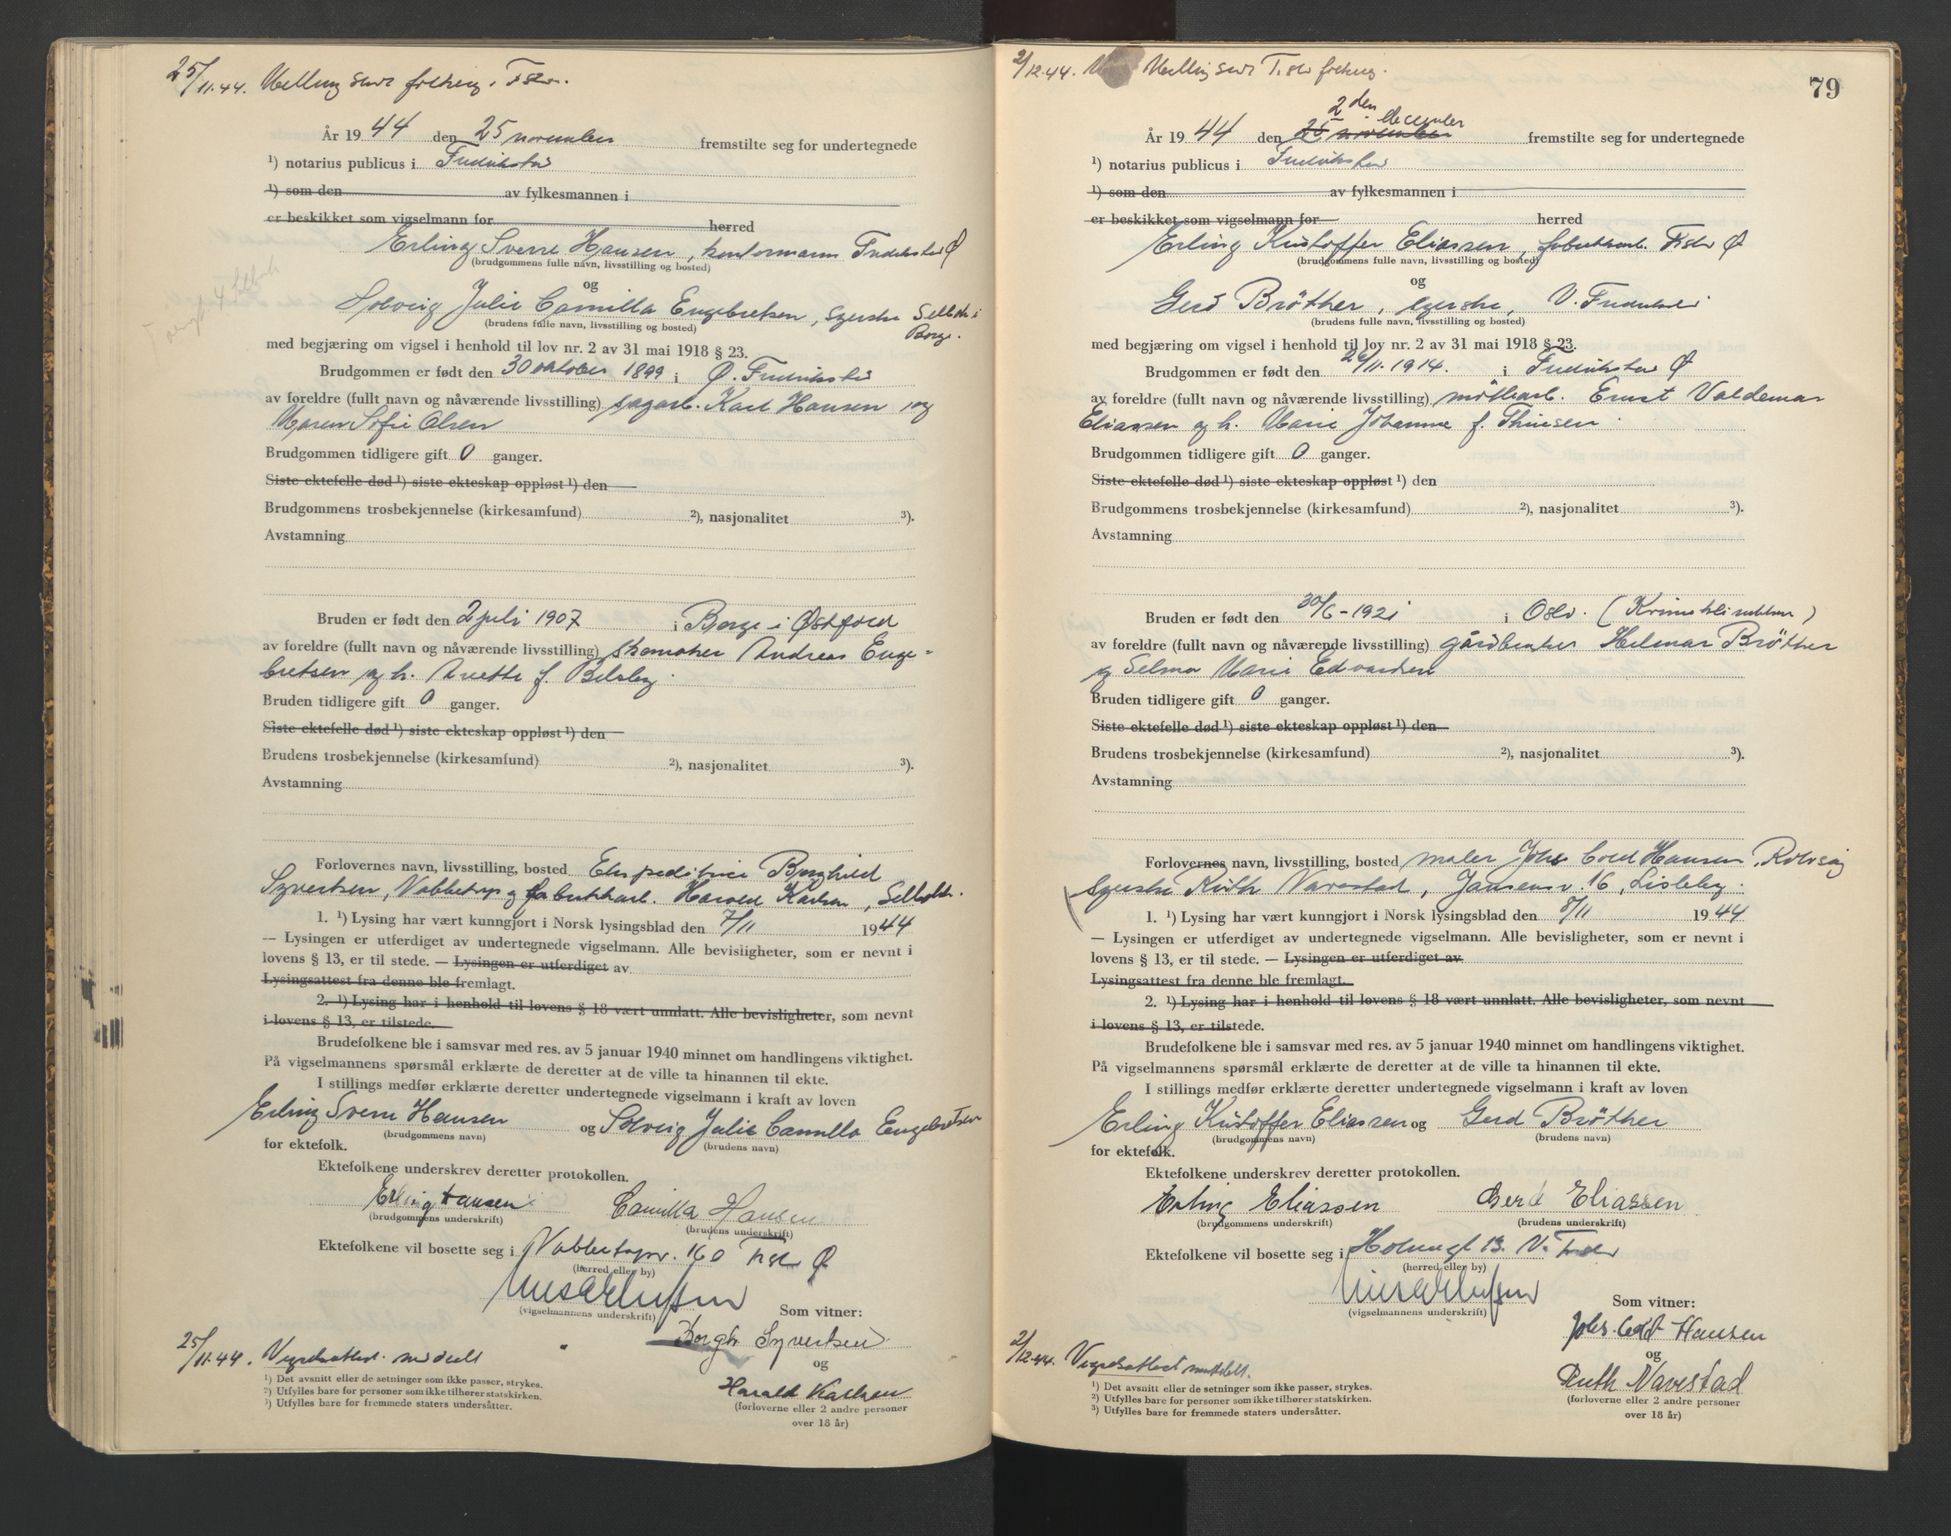 25/11.44. Melling sendt folkereg. F.stad.
År 1944 den 25 november fremstilte seg for undertegnede
¹) notarius publicus i Fredrikstad
¹) som den av fylkesmannen i
er beskikket som vigselmann for herred
Erling Sverre Hansen, kontormann Fredrikstad Ø
(brudgommens fulle navn, livsstilling og bosted)
og
Solveig Julie Camilla Engebretsen, syerske Sellebk i
Borge.
(brudens fulle navn, livsstilling og bosted)
med begjæring om vigsel i henhold til lov nr. 2 av 31 mai 1918 § 23.
Brudgommen er født den 30 oktober 1899 i Ø. Fredrikstad
av foreldre (fullt navn og nåværende livsstilling) sagarb. Karl Hansen og
Maren Sofie Olsen
Brudgommen tidligere gift 0 ganger.
Siste ektefelle død ¹) siste ekteskap oppløst ¹) den
Brudgommens trosbekjennelse (kirkesamfund) ²), nasjonalitet ³).
Avstamning
Bruden er født den 2 juli 1907 i Borge i Østfold
av foreldre (fullt navn og nåværende livsstilling) skomaker Andreas Enge-
bretsen og h. Anette f. Belsby.
Bruden tidligere gift 0 ganger.
Siste ektefelle død ¹) siste ekteskap oppløst ¹) den
Brudens trosbekjennelse (kirkesamfund) ²), nasjonalitet ³).
Avstamning
Forlovernes navn, livsstilling, bosted Ekspeditrice Borghild
Syvertsen, Nabbetorp og fabrikkarb. Harald Karlsen, Sellebk.
1. ¹) Lysing har vært kunngjort i Norsk lysingsblad den 7/11 1944
— Lysingen er utferdiget av undertegnede vigselmann. Alle bevisligheter, som er nevnt i
lovens § 13, er til stede. — Lysingen er utferdiget av
Lysingsattest fra denne ble fremlagt.
2. ¹) Lysing har i henhold til lovens § 18 vært unnlatt. Alle bevisligheter, som nevnt
i lovens § 13, er tilstede.
Brudefolkene ble i samsvar med res. av 5 januar 1940 minnet om handlingens viktighet.
På vigselmannens spørsmål erklærte de deretter at de ville ta hinannen til ekte.
I stillings medfør erklærte deretter undertegnede vigselmann i kraft av loven
Erling Sverre Hansen og Solveig Julie Camilla Engebretsen
(brudgommens navn) (brudens navn)
for ektefolk.
Ektefolkene underskrev deretter protokollen.
Erling Hansen Camilla Hansen
(brudgommens underskrift) (brudens underskrift)
Ektefolkene vil bosette seg i Nabbetorpv. 160 Fr.stad Ø
(herred eller by)
(vigselmannens underskrift)
Som vitner:
Borgh. Syvertsen
og
Harald Karlsen
(forloverne eller 2 andre personer
over 18 år)
25/11.44. Vigselsattest meddelt
¹) Det avsnitt eller de setninger som ikke passer, strykes.
²) Utfylles bare for personer som ikke tilhører statskirken.
³) Utfylles bare for fremmede staters undersåtter.
2/12.44. Melling sendt F.stad folkereg.
79
2 den december
År 1944 den 25 november fremstilte seg for undertegnede
¹) notarius publicus i Fredrikstad
¹) som den av fylkesmannen i
er beskikket som vigselmann for herred
Erling Kristoffer Eliassen, fabrikkarb. F.stad Ø
(brudgommens fulle navn, livsstilling og bosted)
og
Gerd Bröther, syerske, V. Fredrikstad
(brudens fulle navn, livsstilling og bosted)
med begjæring om vigsel i henhold til lov nr. 2 av 31 mai 1918 § 23.
Brudgommen er født den 26/11.1914. i Fredrikstad Ø
av foreldre (fullt navn og nåværende livsstilling) møllearb. Ernst Valdemar
Eliassen og h. Marie Johanne f. Thiusen
Brudgommen tidligere gift 0 ganger.
Siste ektefelle død ¹) siste ekteskap oppløst ¹) den
Brudgommens trosbekjennelse (kirkesamfund) ²), nasjonalitet ³).
Avstamning
Bruden er født den 30/6-1921 i Oslo. (Kvinneklinikken)
av foreldre (fullt navn og nåværende livsstilling) gårdbruker Helmar Bröther
og Selma Marie Edvardsen
Bruden tidligere gift 0 ganger.
Siste ektefelle død ¹) siste ekteskap oppløst ¹) den
Brudens trosbekjennelse (kirkesamfund) ²), nasjonalitet ³).
Avstamning
Forlovernes navn, livsstilling, bosted maler Johs Cold Hansen, Rolvsøy
syerske Ruth Navestad, Jansensv. 16, Lisleby.
1. ¹) Lysing har vært kunngjort i Norsk lysingsblad den 8/11 1944
— Lysingen er utferdiget av undertegnede vigselmann. Alle bevisligheter, som er nevnt i
lovens § 13, er til stede. — Lysingen er utferdiget av
Lysingsattest fra denne ble fremlagt.
2. ¹) Lysing har i henhold til lovens § 18 vært unnlatt. Alle bevisligheter, som nevnt
i lovens § 13, er tilstede.
Brudefolkene ble i samsvar med res. av 5 januar 1940 minnet om handlingens viktighet.
På vigselmannens spørsmål erklærte de deretter at de ville ta hinannen til ekte.
I stillings medfør erklærte deretter undertegnede vigselmann i kraft av loven
Erling Kristoffer Eliassen og Gerd Bröther
(brudgommens navn) (brudens navn)
for ektefolk.
Ektefolkene underskrev deretter protokollen.
Erling Eliassen Gerd Eliassen
(brudgommens underskrift) (brudens underskrift)
Ektefolkene vil bosette seg i Holmegt 13. V. Fr.stad
(herred eller by)
(vigselmannens underskrift)
Som vitner:
Johs. Cold Hansen
og
Ruth Navestad
(forloverne eller 2 andre personer
over 18 år)
2/12.44. Vigselsattest meddelt.
¹) Det avsnitt eller de setninger som ikke passer, strykes.
²) Utfylles bare for personer som ikke tilhører statskirken.
³) Utfylles bare for fremmede staters undersåtter.